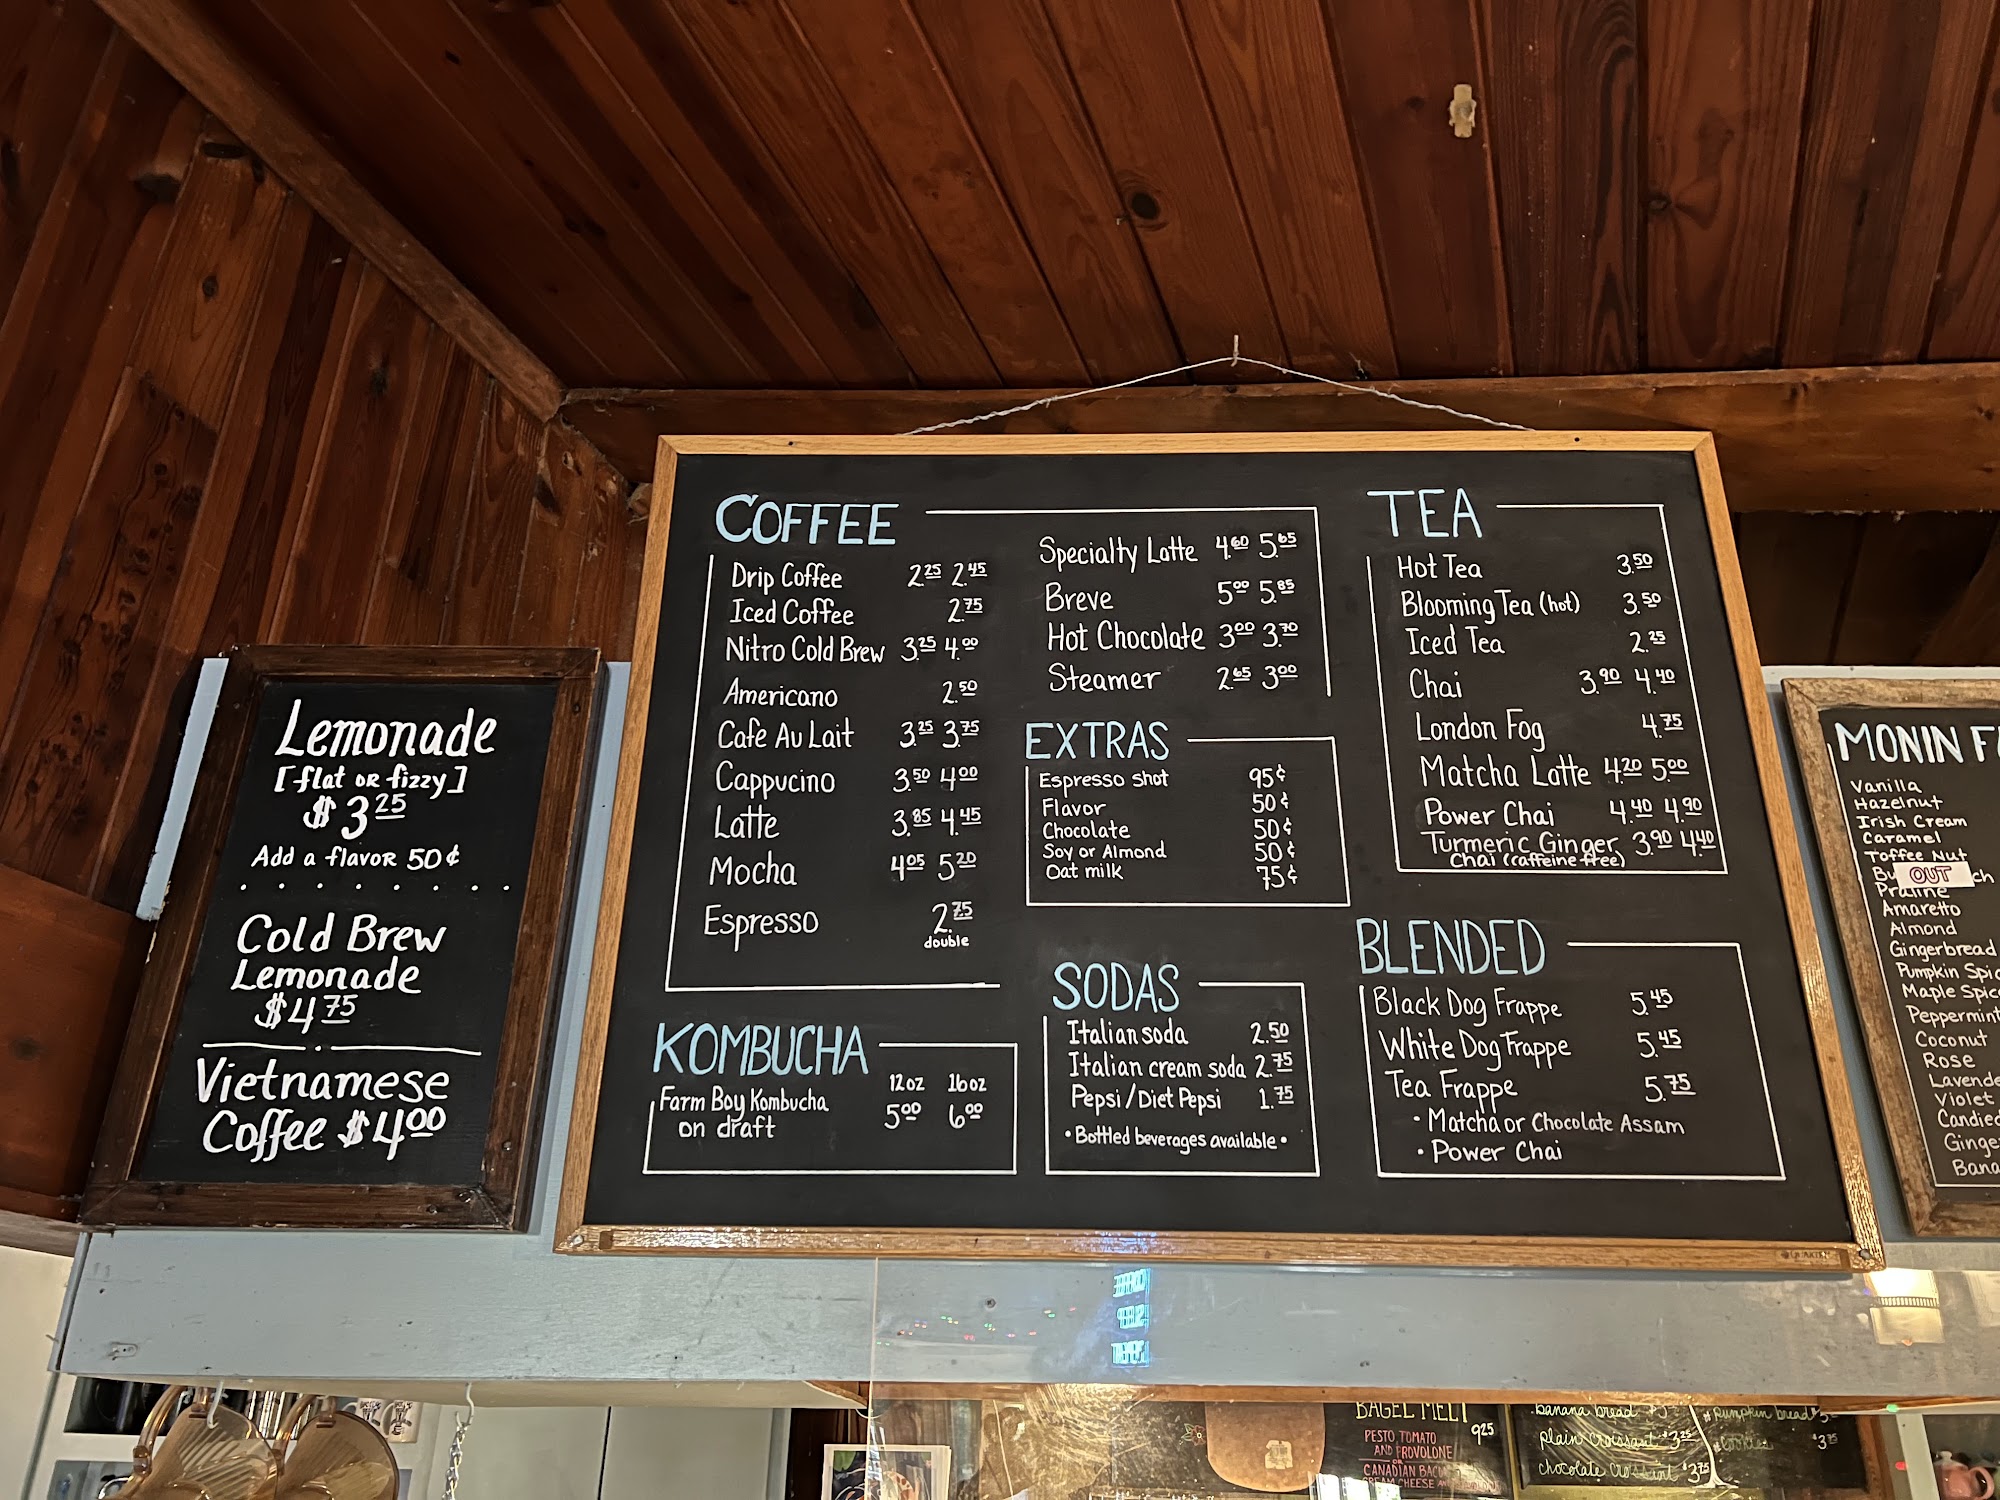 Lemonade
[flat OR fizzy]
$3.25
Add a flavor 50¢
Cold Brew
Lemonade
$4.75
Vietnamese
Coffee $4.00
COFFEE
Drip Coffee 2.25 2.45
Iced Coffee 2.75
Nitro Cold Brew 3.25 4.00
Americano 2.50
Cafe Au Lait 3.25 3.75
Cappucino 3.50 4.00
Latte 3.85 4.45
Mocha 4.05 5.20
Espresso 2.75
double
Specialty Latte 4.60 5.65
Breve 5.00 5.85
Hot Chocolate 3.00 3.70
Steamer 2.65 3.00
EXTRAS
Espresso shot 95¢
Flavor 50¢
Chocolate 50¢
Soy or Almond 50¢
Oat milk 75¢
KOMBUCHA
12oz 16oz
Farm Boy Kombucha 5.00 6.00
on draft
SODAS
Italian soda 2.50
Italian cream soda 2.75
Pepsi/Diet Pepsi 1.75
• Bottled beverages available •
TEA
Hot Tea 3.50
Blooming Tea (hot) 3.50
Iced Tea 2.25
Chai 3.90 4.40
London Fog 4.75
Matcha Latte 4.20 5.00
Power Chai 4.40 4.90
Turmeric Ginger 3.90 4.40
Chai (caffeine free)
BLENDED
Black Dog Frappe 5.45
White Dog Frappe 5.45
Tea Frappe 5.75
• Matcha or Chocolate Assam
• Power Chai
MONIN
Vanilla
Hazelnut
Irish Cream
Caramel
Toffee Nut
OUT
Praline
Amaretto
Almond
Gingerbread
Pumpkin
Maple
Peppermint
Coconut
Rose
Violet
BAGEL MELT 9.25
PESTO, TOMATO
AND PROVOLONE
OR
CANADIAN
CREAM CHEESE
banana bread
plain croissant $3.25
chocolate croissant $3.75
pumpkin bread
cookies $3.75